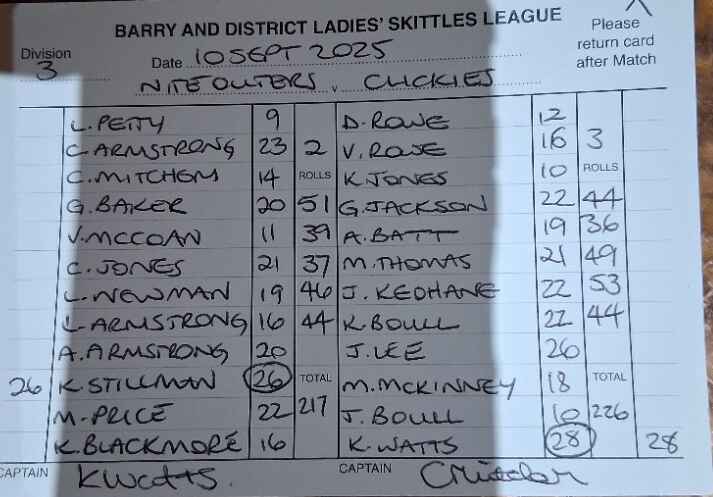 BARRY AND DISTRICT LADIES' SKITTLES LEAGUE
Please return card after Match
Division 3
Date 10 SEPT 2025
NITEOUTERS v CLICKIES
L. PETTY 9 D. ROWE 12
C. ARMSTRONG 23 2 V. ROWE 16 3
C. MITCHEM 14 ROLLS K. JONES 10 ROLLS
G. BAKER 20 51 G. JACKSON 22 44
V. MCCOAN 11 39 A. BATT 19 36
C. JONES 21 37 M. THOMAS 21 49
L. NEWMAN 19 46 J. KEOHANE 22 53
L. ARMSTRONG 16 44 K. BOULL 22 44
A. ARMSTRONG 20 J. LEE 26
26 K. STILLMAN 26 TOTAL M. MCKINNEY 18 TOTAL
M. PRICE 22 217 J. BOULL 10 226
K. BLACKMORE 16 K. WATTS 28 28
CAPTAIN K Watts. CAPTAIN